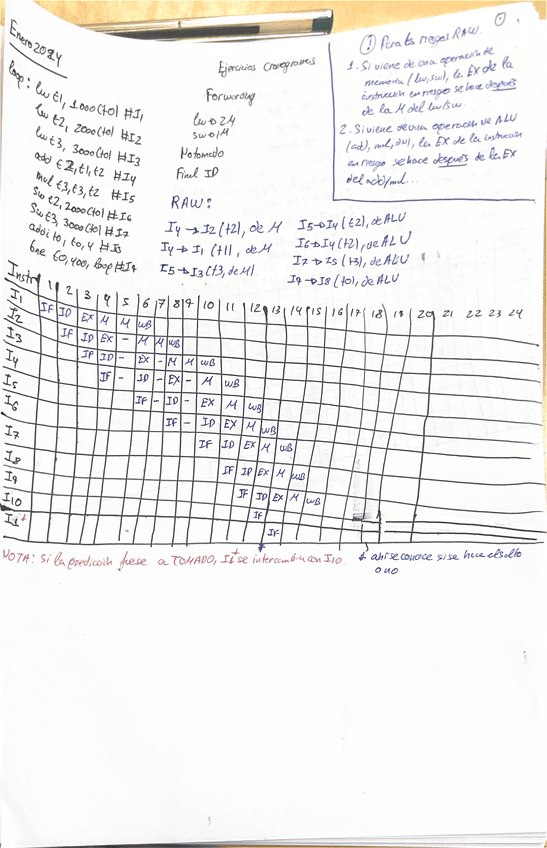 Enero 2024
Ejercicios Cronogramas
loop: lw t1, 1000(t0) #I1
lw t2, 2000(t0) #I2
lw t3, 3000(t0) #I3
add t2, t1, t2 #I4
mul t3, t3, t2 #I5
sw t2, 2000(t0) #I6
sw t3, 3000(t0) #I7
addi t0, t0, 4 #I8
bne t0, 400, loop #I9
Forwarding
lw → 2M
sw → 1M
No tomado
Final ID
! Para los riesgos RAW.
1. Si viene de una operación de
memoria (lw, sw), la EX de la
instrucción en riesgo se hace después
de la M del lw/sw.
2. Si viene de una operación de ALU
(add, mul, div), la EX de la instrucción
en riesgo se hace después de la EX
del add/mul...
RAW:
I4 → I2 (t2), de M
I4 → I1 (t1), de M
I5 → I3 (t3, de M)
I5 → I4 (t2), de ALU
I6 → I4 (t2), de ALU
I7 → I5 (t3), de ALU
I9 → I8 (t0), de ALU
Instr 1 2 3 4 5 6 7 8 9 10 11 12 13 14 15 16 17 18 19 20 21 22 23 24
I1 IF ID EX M M WB
I2 IF ID EX - M M WB
I3 IF ID - EX - M M WB
I4 IF - ID - EX - M WB
I5 IF - ID - EX M WB
I6 IF - ID EX M WB
I7 IF ID EX M WB
I8 IF ID EX M WB
I9 IF ID EX M WB
I10 IF
I1+ IF
NOTA: si la predicción fuese a TOMADO, I1+ se intercambia con I10.
ahí se conoce si se hace el salto
o no